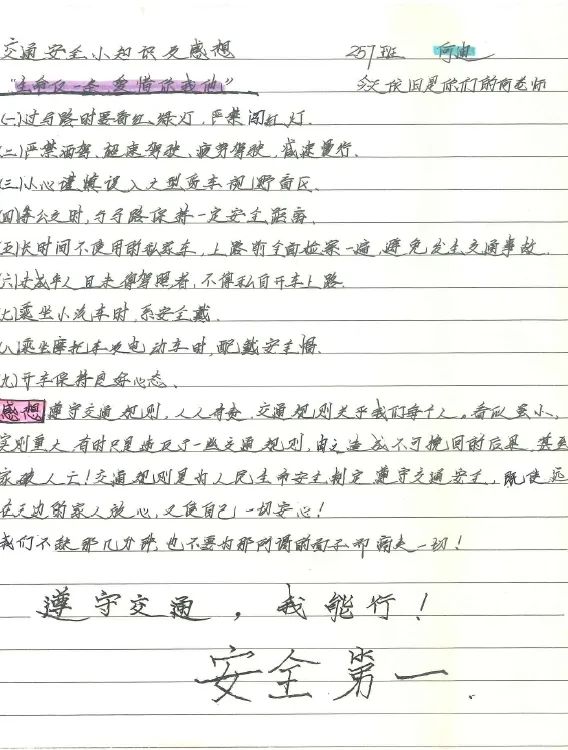 交通安全小知识及感想 257班 何迪
“生命仅一条 爱惜你我他” 今天依旧是你们的何老师
(一)过马路时要看红、绿灯，严禁闯红灯.
(二)严禁酒驾、超速驾驶、疲劳驾驶，减速慢行.
(三)小心谨慎误入大型货车视野盲区.
(四)等公交时，与马路保持一定安全距离.
(五)长时间不使用的私家车，上路前全面检察一遍，避免发生交通事故.
(六)未成年人且未得驾照者，不得私自开车上路.
(七)乘坐小汽车时，系安全戴.
(八)乘坐摩托车及电动车时，配戴安全帽.
(九)开车保持良好心态.
感想 遵守交通规则，人人有责，交通规则关乎我们每个人。看似虽小，
实则重大 有时只是违反了一些交通规则，造成不可挽回的后果，甚至
家破人亡！交通规则是为人民生命安全制定 遵守交通安全，既使远
在天边的家人放心，又使自己一切安心！
我们不缺那几分钟，也不要为那所谓的面子而葬失一切！
遵守交通，我能行！
安全第一.